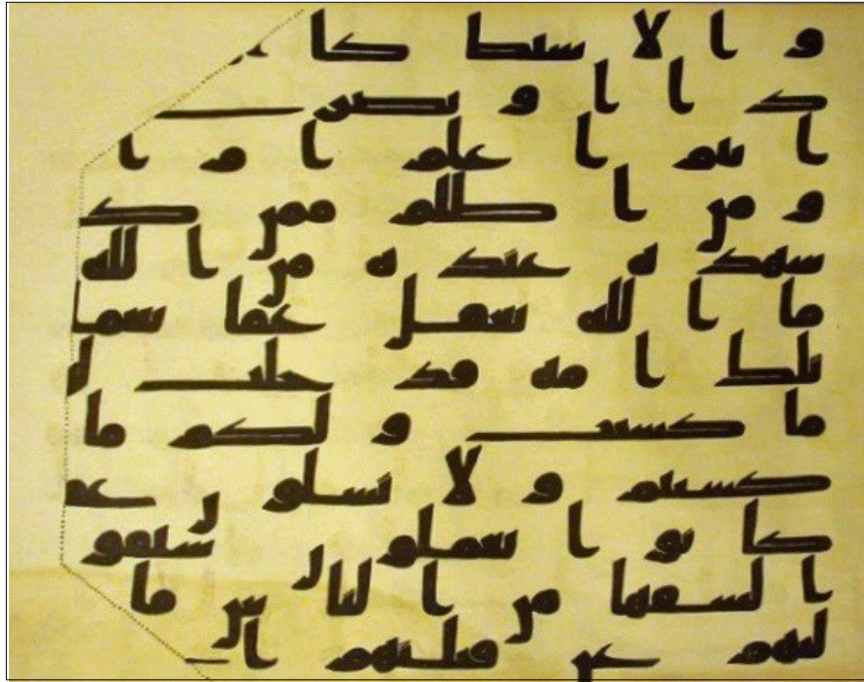 والاسبط كا
دا او نصرى
انتم اعلم ام ا
ومن اظلم ممن كـ
شهده عنده من الله
ما الله بغفل عما تعمـ
تلك امه قد خلت لـ
ما كسبت ولكم ما
كسبتم ولا تسلون عمـ
كانوا يعملون سيقو
السفها من الناس ما
ليهم عن قبلتهم ا